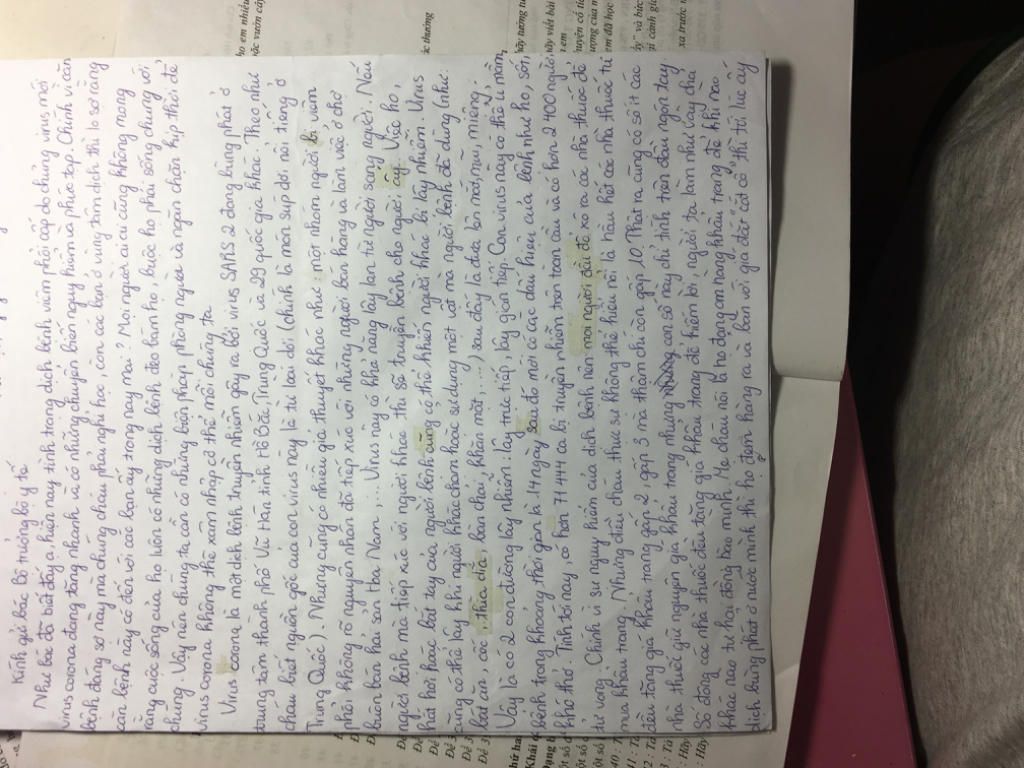 Kính gửi bác Bộ trưởng bộ y tế
Như bác đã biết đấy ạ, hiện nay tình trạng dịch bệnh viêm phổi cấp do chủng virus mới
virus corona đang tăng nhanh và có những chuyển biến nguy hiểm và phức tạp. Chính vì căn
bệnh đáng sợ này mà chúng cháu phải nghỉ học, còn các bạn ở vùng tâm dịch thì lo sợ rằng
căn bệnh này có đến với các bạn ấy trong nay mai? Mọi người ai cũng không mong
rằng cuộc sống của họ luôn có những dịch bệnh đeo bám họ, buộc họ phải sống chung với
chúng. Vậy nên chúng ta cần có những biện pháp phòng ngừa và ngăn chặn kịp thời để
virus corona không thể xâm nhập cơ thể mỗi chúng ta.
Virus corona là một dịch bệnh truyền nhiễm gây ra bởi virus SARS 2 đang bùng phát ở
trung tâm thành phố Vũ Hán tỉnh Hồ Bắc, Trung Quốc và 29 quốc gia khác. Theo như
cháu biết nguồn gốc của con virus này là từ loài dơi (chính là món súp dơi nổi tiếng ở
Trung Quốc). Nhưng cũng có nhiều giả thuyết khác như: một nhóm người bị viêm
phổi không rõ nguyên nhân đã tiếp xúc với những người bán hàng và làm việc ở chợ
buôn bán hải sản Hoa Nam,... Virus này có khả năng lây lan từ người sang người. Nếu
người bệnh mà tiếp xúc với người khác thì sẽ truyền bệnh cho người ấy. Việc ho,
hắt hơi hay bắt tay của người bệnh cũng có thể khiến người khác bị lây nhiễm. Virus
cũng có thể lây khi người khác chạm hoặc sử dụng một vật mà người bệnh đã dùng (như:
bát ăn, cốc, thìa đĩa, bàn chải, khăn mặt,....) sau đấy là đưa lên mắt, mũi, miệng.
Vậy là có 2 con đường lây nhiễm: lây trực tiếp, lây gián tiếp. Con virus này có thể ủ mầm
bệnh trong khoảng thời gian là 14 ngày sau đó mới có các dấu hiệu của bệnh như ho, sốt,
khó thở. Tính tới nay, có hơn 71 444 ca bị truyền nhiễm trên toàn cầu và có hơn 2 400 người
tử vong. Chính vì sự nguy hiểm của dịch bệnh nên mọi người đã đổ xô ra các nhà thuốc để
mua khẩu trang. Nhưng điều cháu thực sự không thể hiểu nổi là hầu hết các nhà thuốc từ
đều tăng giá khẩu trang gấp 2 gấp 3 mà thậm chí còn gấp 10. Thật ra cũng có số ít các
nhà thuốc giữ nguyên giá khẩu trang nhưng con số này chỉ tính trên đầu ngón tay.
Số đông các nhà thuốc đều tăng giá khẩu trang để kiếm lời, người ta làm như vậy chả
khác nào tự hại đồng bào mình. Mẹ cháu nói là họ đang ôm hàng khẩu trang để khi nào
dịch bùng phát ở nước mình thì họ đem hàng ra và bán với giá đắt "cắt cổ" thì từ lúc ấy